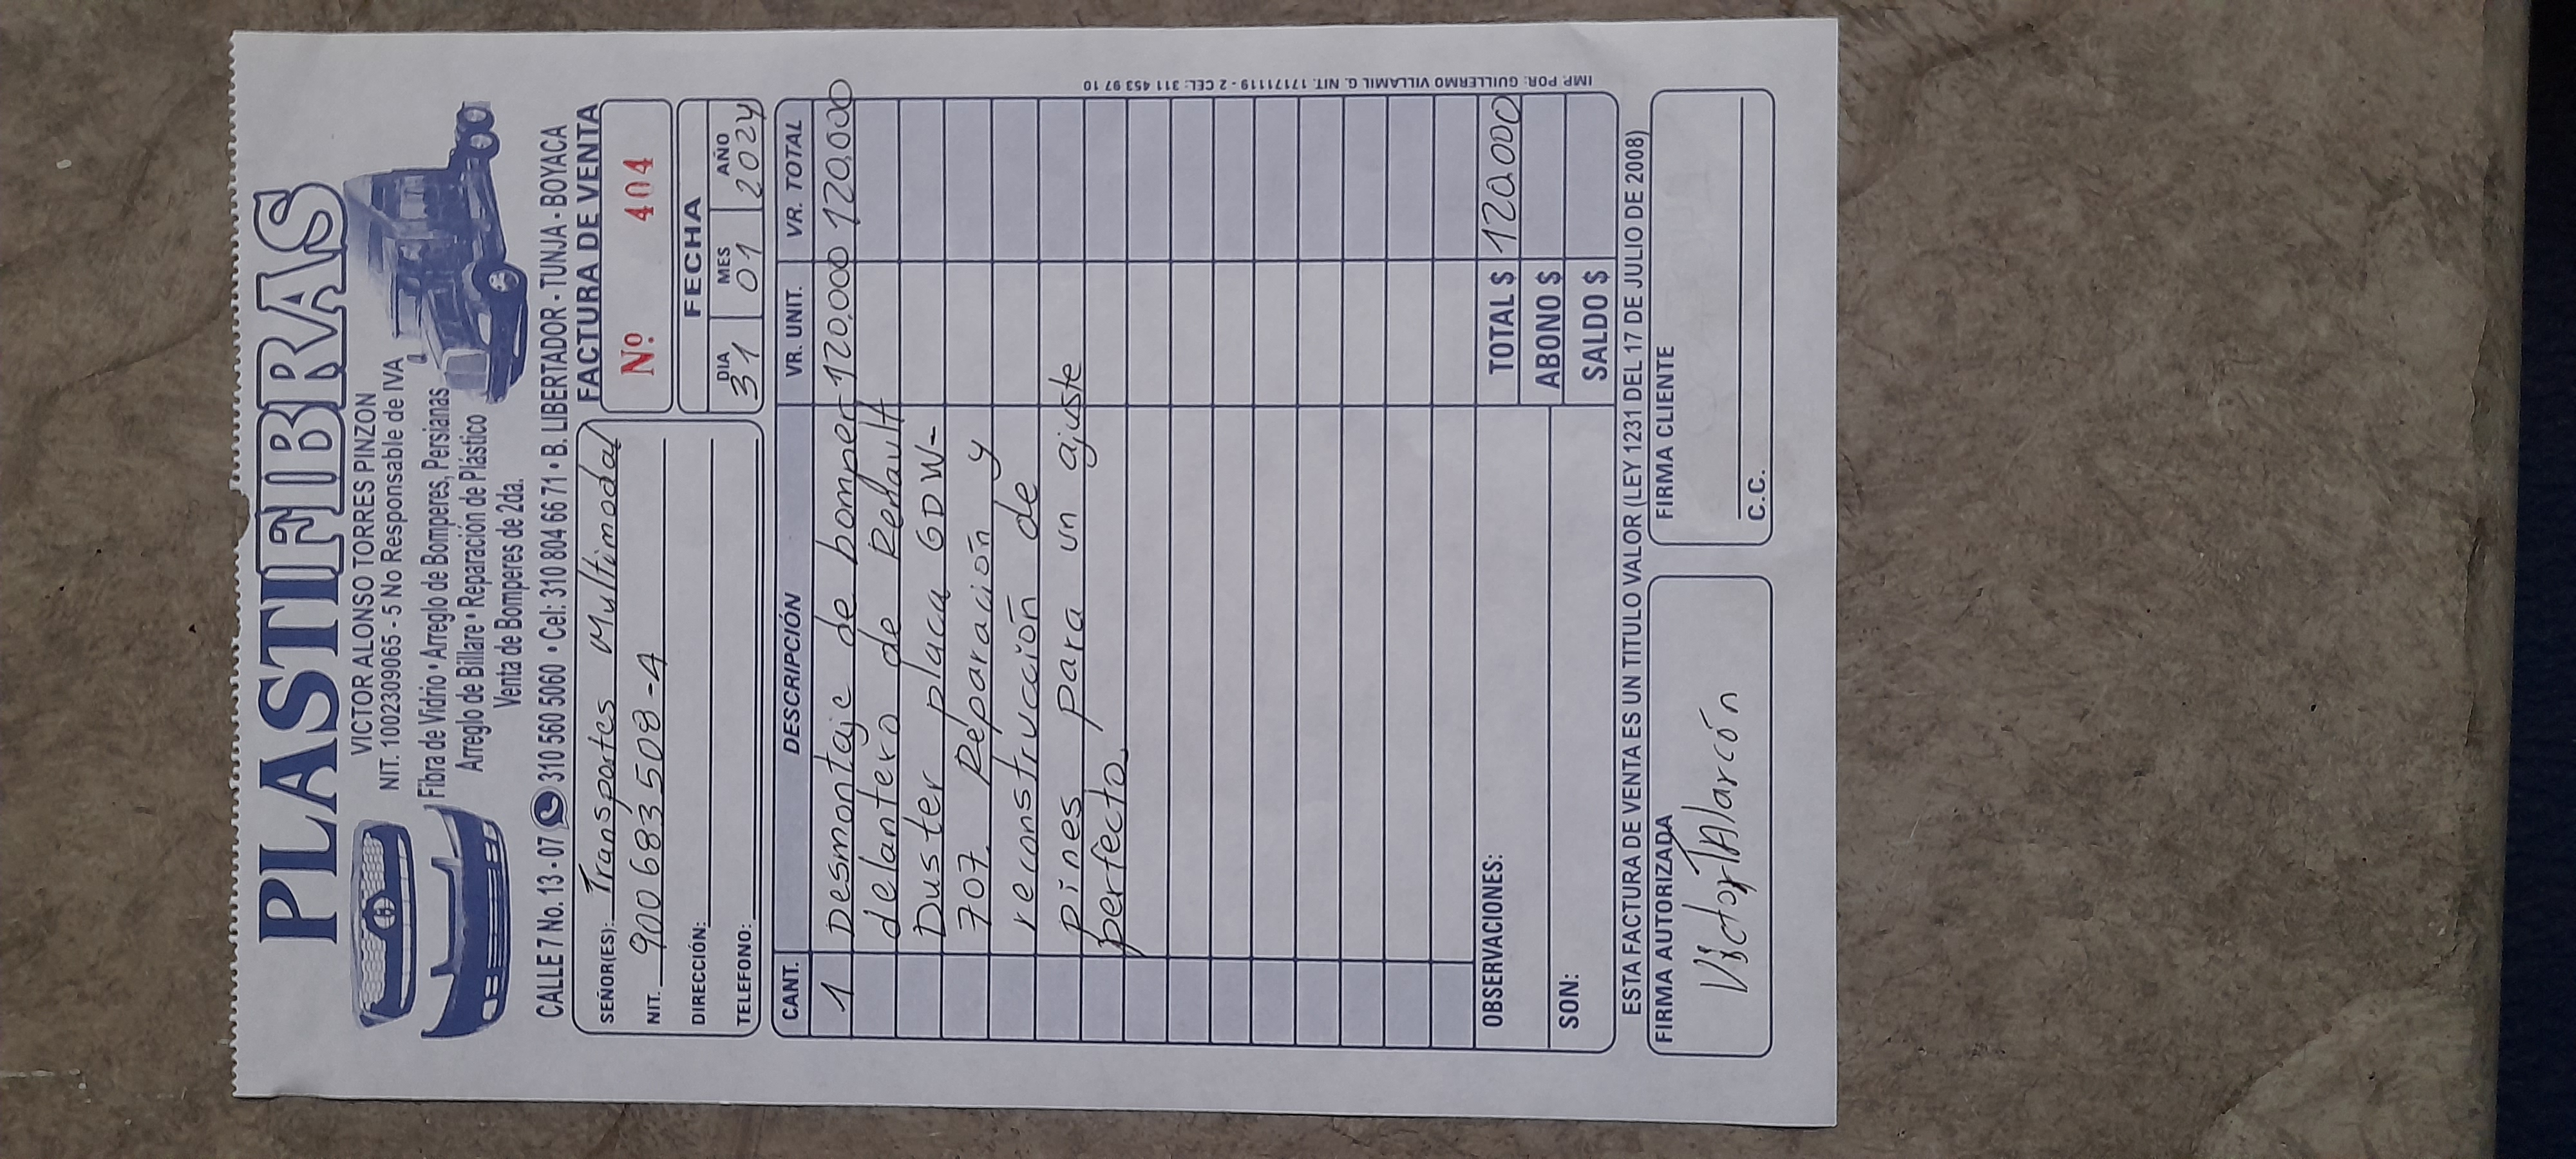 PLASTIFIBRAS
VICTOR ALONSO TORRES PINZON
NIT. 1002309065 - 5 No Responsable de IVA
Fibra de Vidrio • Arreglo de Bomperes, Persianas
Arreglo de Billare • Reparación de Plástico
Venta de Bomperes de 2da.
CALLE 7 No. 13 - 07 310 560 5060 • Cel: 310 804 66 71 • B. LIBERTADOR - TUNJA - BOYACA
FACTURA DE VENTA
SEÑOR(ES): Transportes Multimodal
NIT. 900683508-4
DIRECCIÓN:
TELEFONO:
Nº 404
FECHA
DIA MES AÑO
31 01 2024
CANT. DESCRIPCIÓN VR. UNIT. VR. TOTAL
1 Desmontaje de bomper 120.000 120.000
delantero de Renault
Duster placa GDW-
707. Reparación y
reconstrucción de
Pines para un ajuste
perfecto.
OBSERVACIONES:
SON:
TOTAL $ 120.000
ABONO $
SALDO $
ESTA FACTURA DE VENTA ES UN TITULO VALOR (LEY 1231 DEL 17 DE JULIO DE 2008)
FIRMA AUTORIZADA
Victor T Alarcón
FIRMA CLIENTE
C.C.
IMP. POR: GUILLERMO VILLAMIL G. NIT. 17171119 - 2 CEL: 311 453 97 10